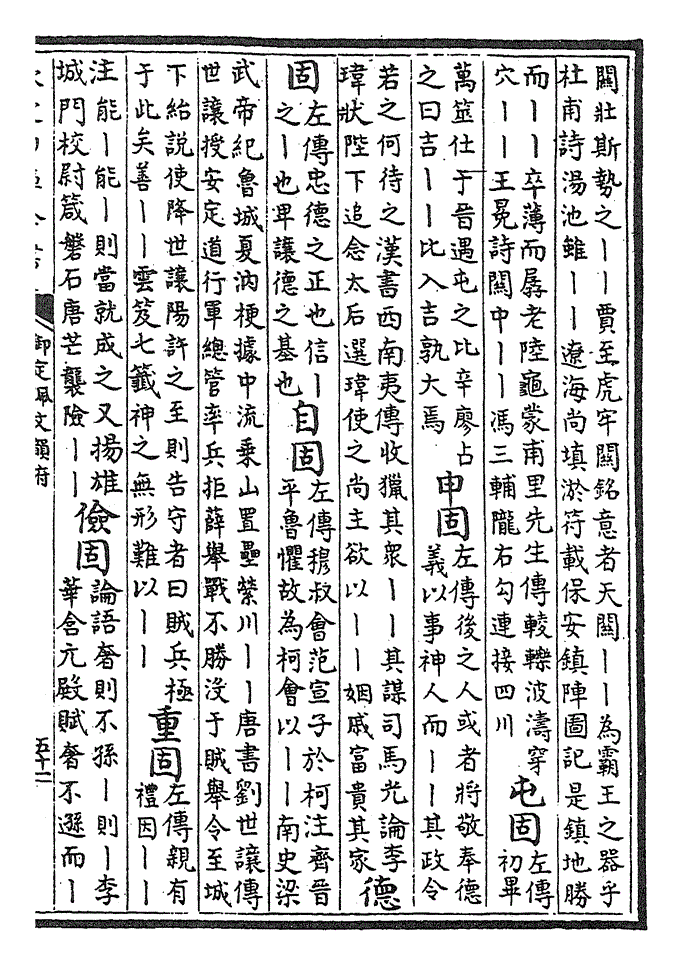 關壯斯勢之丨丨賈至虎牢關銘意者天關丨丨為霸王之器乎
杜甫詩湯池雖丨丨遼海尚填淤符載保安鎮陣圖記是鎮地勝
而丨丨卒薄而孱老陸龜蒙甫里先生傳較轢波濤穿
穴丨丨王冕詩關中丨丨馮三輔隴右勾連接四川
屯固
左傳
初畢
萬筮仕于晉遇屯之比辛廖占
之曰吉丨丨比入吉孰大焉
申固
左傳後之人或者將敬奉德
義以事神人而丨丨其政令
若之何待之漢書西南夷傳收獵其衆丨丨其謀司馬光論李
瑋狀陛下追念太后選瑋使之尚主欲以丨丨姻戚富貴其家
德
固
左傳忠德之正也信丨
之丨也卑讓德之基也
自固
左傳穆叔會范宣子於柯注齊晉
平魯懼故為柯會以丨丨南史梁
武帝紀魯城夏汭梗據中流乘山置壘縈川丨丨唐書劉世讓傳
世讓授安定道行軍總管率兵拒薛舉戰不勝沒于賊舉令至城
下紿說使降世讓陽許之至則告守者曰賊兵極
于此矣善丨丨雲笈七籤神之無形難以丨丨
重固
左傳親有
禮因丨丨
注能丨能丨則當就成之又揚雄
城門校尉箴磐石唐芒襲險丨丨
儉固
論語奢則不孫丨則丨李
華含元殿賦奢不遜而丨
御定佩文韻府